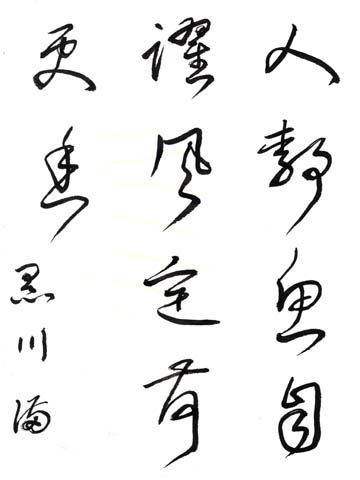 人静魚自
躍風定荷
更香
黒川